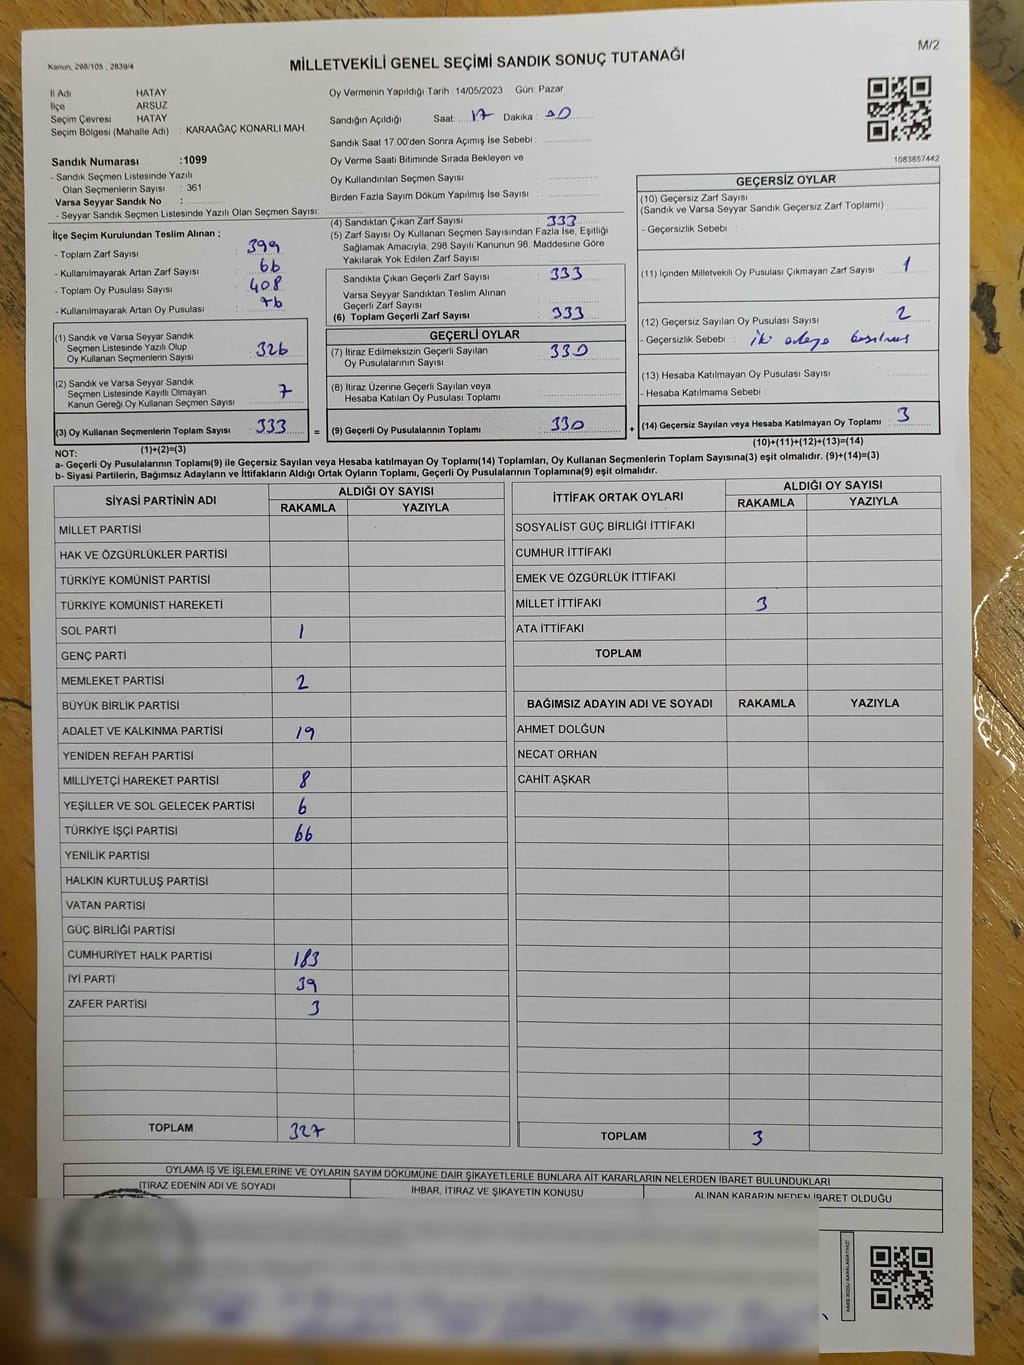 M/2
Kanun, 298/105 , 2839/4
MİLLETVEKİLİ GENEL SEÇİMİ SANDIK SONUÇ TUTANAĞI
İl Adı : HATAY
İlçe : ARSUZ
Seçim Çevresi : HATAY
Seçim Bölgesi (Mahalle Adı) : KARAAĞAÇ KONARLI MAH.
Sandık Numarası :1099
- Sandık Seçmen Listesinde Yazılı
Olan Seçmenlerin Sayısı : 361
Varsa Seyyar Sandık No :
- Seyyar Sandık Seçmen Listesinde Yazılı Olan Seçmen Sayısı:
İlçe Seçim Kurulundan Teslim Alınan ;
- Toplam Zarf Sayısı : 399
- Kullanılmayarak Artan Zarf Sayısı : 66
- Toplam Oy Pusulası Sayısı : 408
- Kullanılmayarak Artan Oy Pusulası : 76
(1) Sandık ve Varsa Seyyar Sandık
Seçmen Listesinde Yazılı Olup
Oy Kullanan Seçmenlerin Sayısı 326
(2) Sandık ve Varsa Seyyar Sandık
Seçmen Listesinde Kayıtlı Olmayan
Kanun Gereği Oy Kullanan Seçmen Sayısı 7
(3) Oy Kullanan Seçmenlerin Toplam Sayısı 333
(1)+(2)=(3)
Oy Vermenin Yapıldığı Tarih :14/05/2023 Gün: Pazar
Sandığın Açıldığı Saat: 17 Dakika : 00
Sandık Saat 17.00'den Sonra Açımış İse Sebebi :
Oy Verme Saati Bitiminde Sırada Bekleyen ve
Oy Kullandırılan Seçmen Sayısı :
Birden Fazla Sayım Döküm Yapılmış İse Sayısı :
(4) Sandıktan Çıkan Zarf Sayısı : 333
(5) Zarf Sayısı Oy Kullanan Seçmen Sayısından Fazla İse, Eşitliği
Sağlamak Amacıyla, 298 Sayılı Kanunun 98. Maddesine Göre
Yakılarak Yok Edilen Zarf Sayısı :
Sandıkta Çıkan Geçerli Zarf Sayısı : 333
Varsa Seyyar Sandıktan Teslim Alınan
Geçerli Zarf Sayısı :
(6) Toplam Geçerli Zarf Sayısı : 333
GEÇERLİ OYLAR
(7) İtiraz Edilmeksizin Geçerli Sayılan : 330
Oy Pusulalarının Sayısı
(8) İtiraz Üzerine Geçerli Sayılan veya
Hesaba Katılan Oy Pusulası Toplamı :
= (9) Geçerli Oy Pusulalarının Toplamı : 330 +
1083857442
GEÇERSİZ OYLAR
(10) Geçersiz Zarf Sayısı
(Sandık ve Varsa Seyyar Sandık Geçersiz Zarf Toplamı) :
- Geçersizlik Sebebi :
(11) İçinden Milletvekili Oy Pusulası Çıkmayan Zarf Sayısı : 1
(12) Geçersiz Sayılan Oy Pusulası Sayısı : 2
- Geçersizlik Sebebi : iki adaya basılmış
(13) Hesaba Katılmayan Oy Pusulası Sayısı :
- Hesaba Katılmama Sebebi :
(14) Geçersiz Sayılan veya Hesaba Katılmayan Oy Toplamı : 3
(10)+(11)+(12)+(13)=(14)
NOT:
a- Geçerli Oy Pusulalarının Toplamı(9) ile Geçersiz Sayılan veya Hesaba katılmayan Oy Toplamı(14) Toplamları, Oy Kullanan Seçmenlerin Toplam Sayısına(3) eşit olmalıdır. (9)+(14)=(3)
b- Siyasi Partilerin, Bağımsız Adayların ve İttifakların Aldığı Ortak Oyların Toplamı, Geçerli Oy Pusulalarının Toplamına(9) eşit olmalıdır.
SİYASİ PARTİNİN ADI ALDIĞI OY SAYISI
RAKAMLA YAZIYLA
MİLLET PARTİSİ
HAK VE ÖZGÜRLÜKLER PARTİSİ
TÜRKİYE KOMÜNİST PARTİSİ
TÜRKİYE KOMÜNİST HAREKETİ
SOL PARTİ 1
GENÇ PARTİ
MEMLEKET PARTİSİ 2
BÜYÜK BİRLİK PARTİSİ
ADALET VE KALKINMA PARTİSİ 19
YENİDEN REFAH PARTİSİ
MİLLİYETÇİ HAREKET PARTİSİ 8
YEŞİLLER VE SOL GELECEK PARTİSİ 6
TÜRKİYE İŞÇİ PARTİSİ 66
YENİLİK PARTİSİ
HALKIN KURTULUŞ PARTİSİ
VATAN PARTİSİ
GÜÇ BİRLİĞİ PARTİSİ
CUMHURİYET HALK PARTİSİ 183
İYİ PARTİ 39
ZAFER PARTİSİ 3
TOPLAM 327
İTTİFAK ORTAK OYLARI ALDIĞI OY SAYISI
RAKAMLA YAZIYLA
SOSYALİST GÜÇ BİRLİĞİ İTTİFAKI
CUMHUR İTTİFAKI
EMEK VE ÖZGÜRLÜK İTTİFAKI
MİLLET İTTİFAKI 3
ATA İTTİFAKI
TOPLAM
BAĞIMSIZ ADAYIN ADI VE SOYADI RAKAMLA YAZIYLA
AHMET DOLĞUN
NECAT ORHAN
CAHİT AŞKAR
TOPLAM 3
OYLAMA İŞ VE İŞLEMLERİNE VE OYLARIN SAYIM DÖKÜMÜNE DAİR ŞİKAYETLERLE BUNLARA AİT KARARLARIN NELERDEN İBARET BULUNDUKLARI
İTİRAZ EDENİN ADI VE SOYADI İHBAR, İTİRAZ VE ŞİKAYETİN KONUSU ALINAN KARARIN NEDEN İBARET OLDUĞU